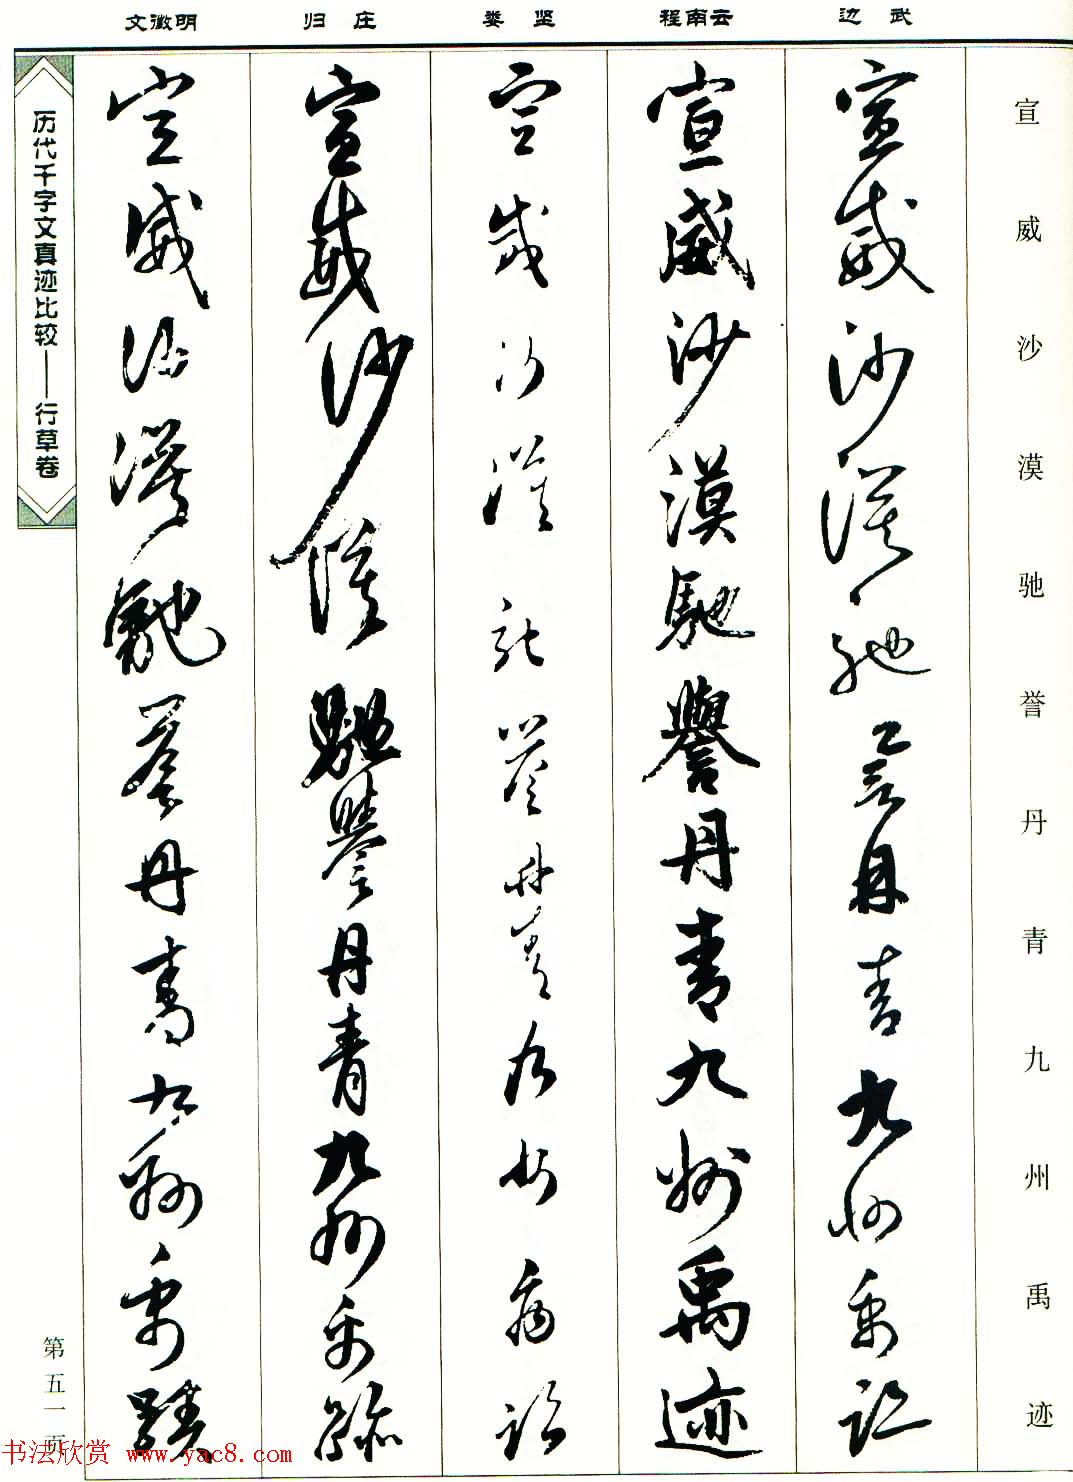 文徵明 归庄 娄坚 程南云 边武
宣威沙漠驰誉丹青九州禹迹
宣威沙漠馳譽丹青九州禹迹
宣威沙漠馳譽丹青九州禹迹
宣威沙漠馳譽丹青九州禹迹
宣威沙漠馳譽丹青九州禹跡
宣威沙漠馳譽丹青九州禹蹟
历代千字文真迹比较——行草卷
第五一页
书法欣赏 www.yac8.com